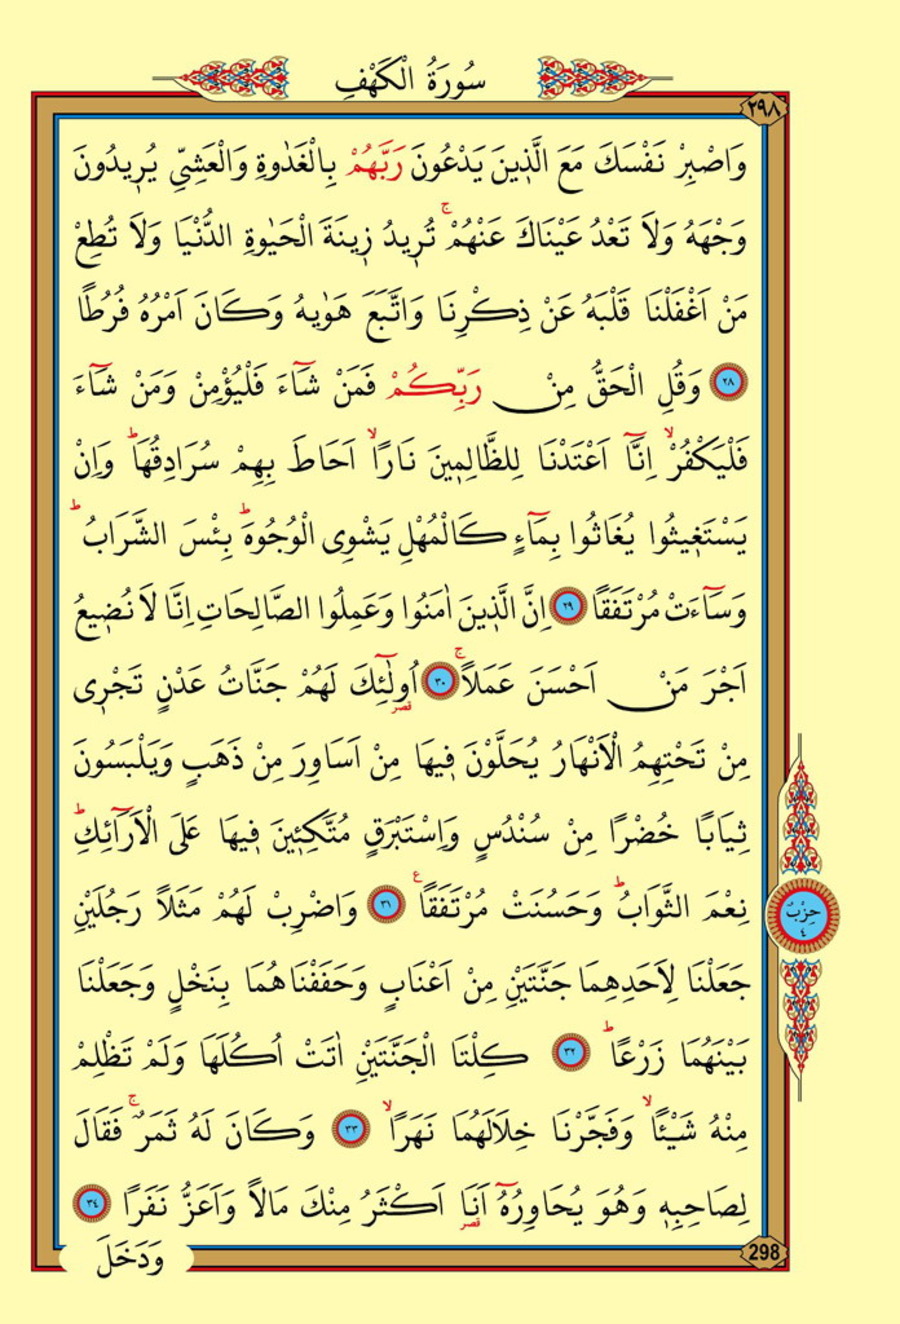 سُورَةُ الْكَهْفِ
٢٩٨
وَاصْبِرْ نَفْسَكَ مَعَ الَّذِينَ يَدْعُونَ رَبَّهُمْ بِالْغَدٰوةِ وَالْعَشِيِّ يُرِيدُونَ
وَجْهَهُ وَلَا تَعْدُ عَيْنَاكَ عَنْهُمْۚ تُرِيدُ زِينَةَ الْحَيٰوةِ الدُّنْيَا وَلَا تُطِعْ
مَنْ اَغْفَلْنَا قَلْبَهُ عَنْ ذِكْرِنَا وَاتَّبَعَ هَوٰيهُ وَكَانَ اَمْرُهُ فُرُطًا
٢٨ وَقُلِ الْحَقُّ مِنْ رَبِّكُمْ فَمَنْ شَٓاءَ فَلْيُؤْمِنْ وَمَنْ شَٓاءَ
فَلْيَكْفُرْۙ اِنَّٓا اَعْتَدْنَا لِلظَّالِمِينَ نَارًاۙ اَحَاطَ بِهِمْ سُرَادِقُهَاۜ وَاِنْ
يَسْتَغِيثُوا يُغَاثُوا بِمَٓاءٍ كَالْمُهْلِ يَشْوِى الْوُجُوهَۜ بِئْسَ الشَّرَابُۜ
وَسَٓاءَتْ مُرْتَفَقًا ٢٩ اِنَّ الَّذِينَ اٰمَنُوا وَعَمِلُوا الصَّالِحَاتِ اِنَّا لَا نُضِيعُ
اَجْرَ مَنْ اَحْسَنَ عَمَلًاۚ ٣٠ اُولٰٓئِكَ لَهُمْ جَنَّاتُ عَدْنٍ تَجْرِى
قصر
مِنْ تَحْتِهِمُ الْاَنْهَارُ يُحَلَّوْنَ فِيهَا مِنْ اَسَاوِرَ مِنْ ذَهَبٍ وَيَلْبَسُونَ
ثِيَابًا خُضْرًا مِنْ سُنْدُسٍ وَاِسْتَبْرَقٍ مُتَّكِئِينَ فِيهَا عَلَى الْاَرَٓائِكِۜ
نِعْمَ الثَّوَابُۜ وَحَسُنَتْ مُرْتَفَقًا ع ٣١ وَاضْرِبْ لَهُمْ مَثَلًا رَجُلَيْنِ
حِزْبُ
٤
جَعَلْنَا لِاَحَدِهِمَا جَنَّتَيْنِ مِنْ اَعْنَابٍ وَحَفَفْنَاهُمَا بِنَخْلٍ وَجَعَلْنَا
بَيْنَهُمَا زَرْعًاۜ ٣٢ كِلْتَا الْجَنَّتَيْنِ اٰتَتْ اُكُلَهَا وَلَمْ تَظْلِمْ
مِنْهُ شَيْـًٔاۙ وَفَجَّرْنَا خِلَالَهُمَا نَهَرًاۙ ٣٣ وَكَانَ لَهُ ثَمَرٌۚ فَقَالَ
لِصَاحِبِهِ وَهُوَ يُحَاوِرُهُٓ اَنَا اَكْثَرُ مِنْكَ مَالًا وَاَعَزُّ نَفَرًا ٣٤
قصر
298
وَدَخَلَ